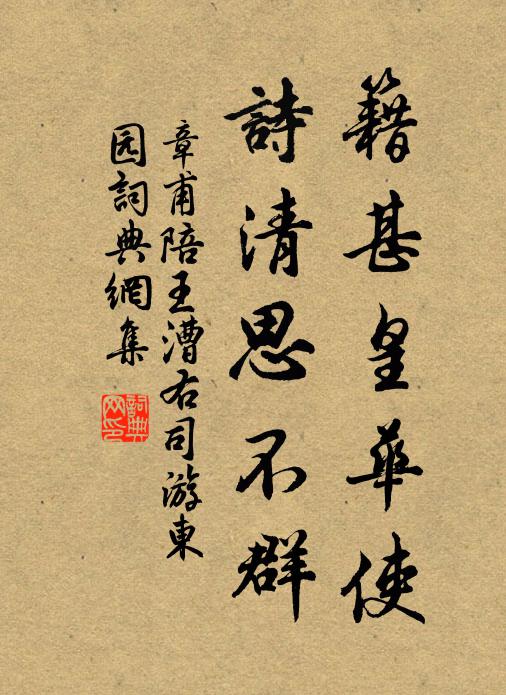 籍甚皇華使
詩清思不群
章甫陪王漕右司游東
园詞典網集
詞典網印